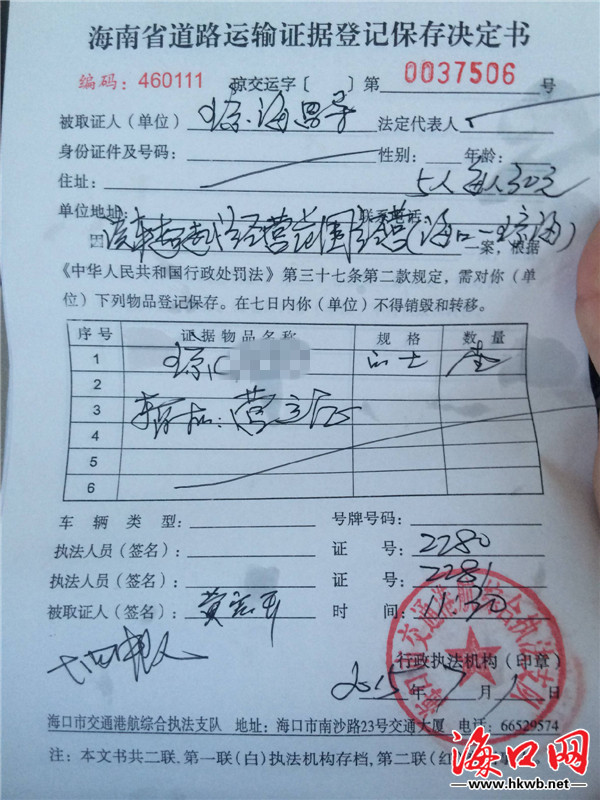 海南省道路运输证据登记保存决定书
编码：460111 琼交运字〔 〕第 0037506 号
被取证人（单位） 琼海 法定代表人
身份证件及号码： 性别： 年龄：
住址： 5人每人30元
单位地址： 联系电话
因 该车超越经营范围经营（海口一琼海） 一案，依据
《中华人民共和国行政处罚法》第三十七条第二款规定，需对你（单
位）下列物品登记保存。在七日内你（单位）不得销毁和转移。
序号 证据物品名称 规格 数量
1 琼C
2
3 营
4
5
6
车辆类型： 号牌号码：
执法人员（签名）： 证号：2280
执法人员（签名）： 证号：2281
被取证人（签名）： 时间：11.30
行政执法机构（印章）
2015年7月 日
海口市交通港航综合执法支队
海口市交通港航综合执法支队 地址：海口市南沙路23号交通大厦 电话：66529574
注：本文书共二联．第一联（白）执法机构存档，第二联（红
海口网
www.hkwb.net